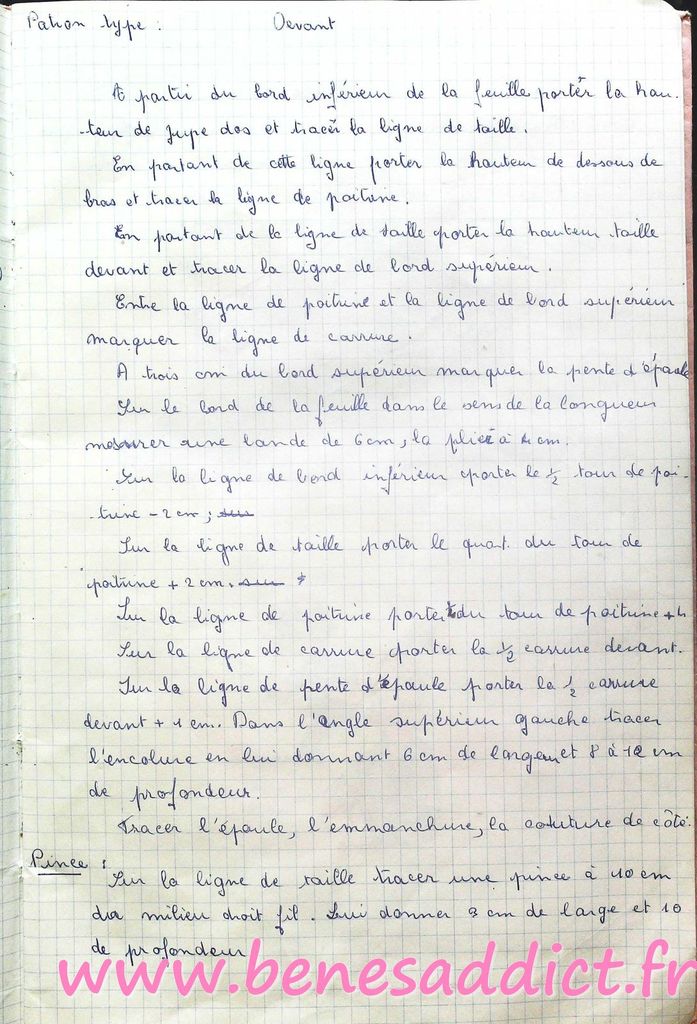 Patron type : Devant
A partir du bord inférieur de la feuille porter la hau-
-teur de jupe dos et tracer la ligne de taille.
En partant de cette ligne porter la hauteur de dessous de
bras et tracer la ligne de poitrine.
En partant de la ligne de taille porter la hauteur taille
devant et tracer la ligne de bord supérieur.
Entre la ligne de poitrine et la ligne de bord supérieur
marquer la ligne de carrure.
A trois cm du bord supérieur marquer la pente d'épaule
Sur le bord de la feuille dans le sens de la longueur
mesurer une bande de 6 cm, la plier à cm.
Sur la ligne de bord inférieur porter le 1/2 tour de poi-
trine - 2 cm ; sur
Sur la ligne de taille porter le quart du tour de
poitrine + 2 cm. sur
Sur la ligne de poitrine porter du tour de poitrine + 4
Sur la ligne de carrure porter la 1/2 carrure devant.
Sur la ligne de pente d'épaule porter la 1/2 carrure
devant + 1 cm. Dans l'angle supérieur gauche tracer
l'encolure en lui donnant 6 cm de large et 8 à 12 cm
de profondeur.
Tracer l'épaule, l'emmanchure, la couture de côté.
Pince :
Sur la ligne de taille tracer une pince à 10 cm
du milieu droit fil. Lui donner 3 cm de large et 10
de profondeur
www.benesaddict.fr